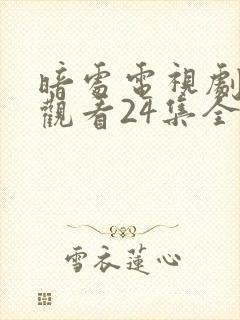 暗處電視劇
觀看24集全
雪衣蓮心